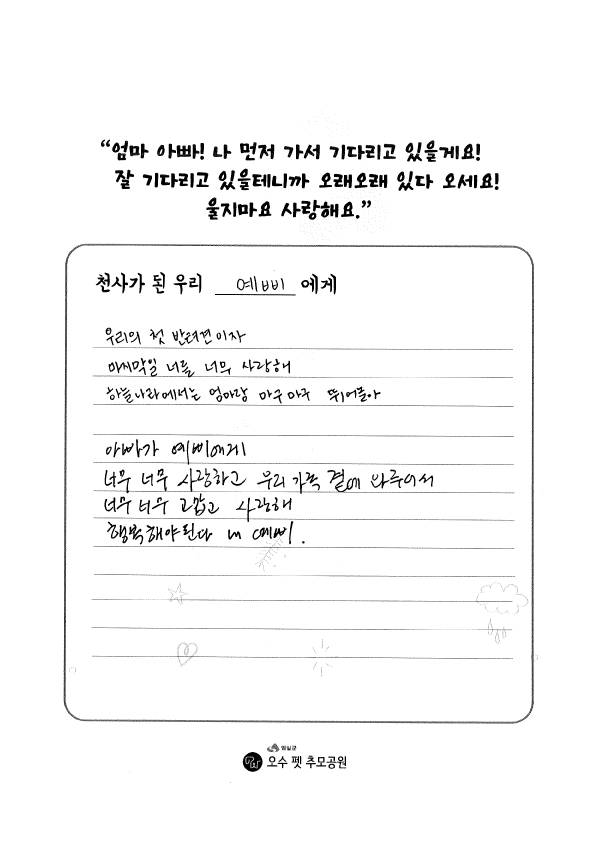 “엄마 아빠! 나 먼저 가서 기다리고 있을게요!
잘 기다리고 있을테니까 오래오래 있다 오세요!
울지마요 사랑해요.”
천사가 된 우리 예삐 에게
우리의 첫 반려견이자
마지막일 너를 너무 사랑해
하늘나라에서는 엄마랑 마구마구 뛰어놀아
아빠가 예삐에게
너무 너무 사랑하고 우리 가족 곁에 와주어서
너무 너무 고맙고 사랑해
행복해야된다 예삐.
임실군
오수 펫 추모공원